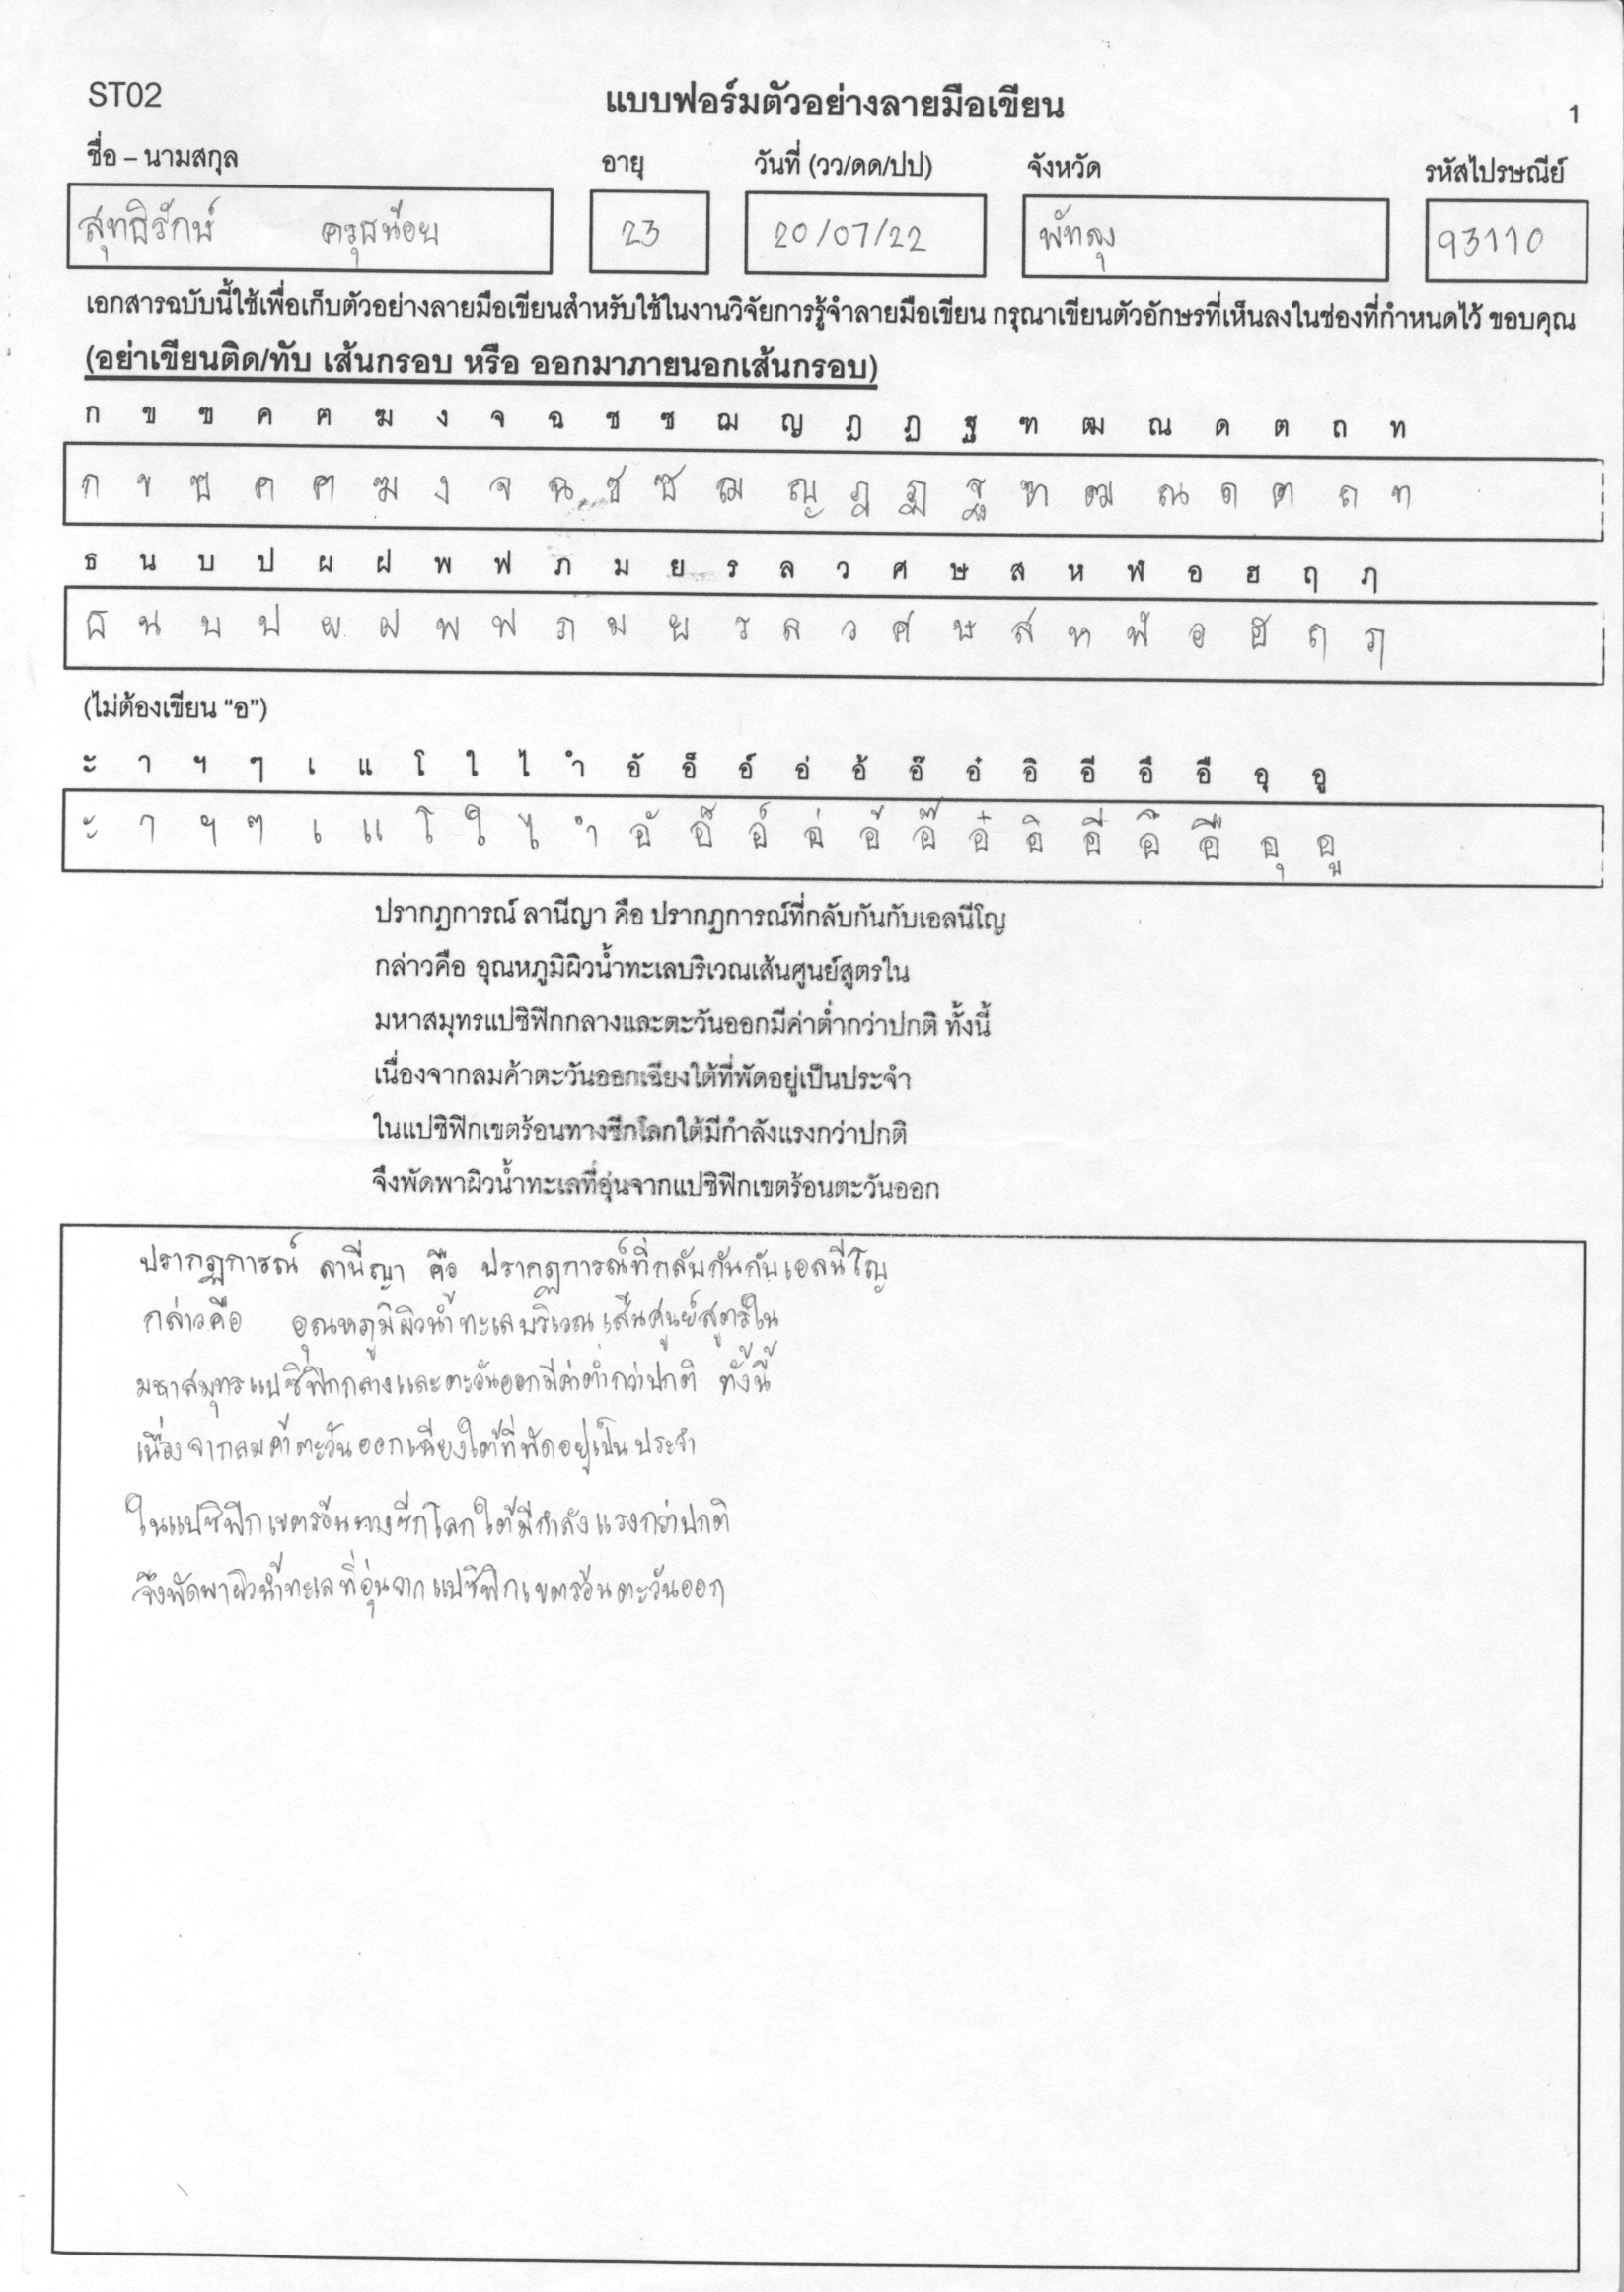 ST02
แบบฟอร์มตัวอย่างลายมือเขียน
1
ชื่อ – นามสกุล อายุ วันที่ (วว/ดด/ปป) จังหวัด รหัสไปรษณีย์
สุทธิรักษ์ ครุธน้อย 23 20/07/22 พัทลุง 93110
เอกสารฉบับนี้ใช้เพื่อเก็บตัวอย่างลายมือเขียนสำหรับใช้ในงานวิจัยการรู้จำลายมือเขียน กรุณาเขียนตัวอักษรที่เห็นลงในช่องที่กำหนดไว้ ขอบคุณ
(อย่าเขียนติด/ทับ เส้นกรอบ หรือ ออกมาภายนอกเส้นกรอบ)
ก ข ฃ ค ฅ ฆ ง จ ฉ ช ซ ฌ ญ ฎ ฏ ฐ ฑ ฒ ณ ด ต ถ ท
ก ข ฃ ค ฅ ฆ ง จ ฉ ช ซ ฌ ญ ฎ ฏ ฐ ฑ ฒ ณ ด ต ถ ท
ธ น บ ป ผ ฝ พ ฟ ภ ม ย ร ล ว ศ ษ ส ห ฬ อ ฮ ฤ ฦ
ธ น บ ป ผ ฝ พ ฟ ภ ม ย ร ล ว ศ ษ ส ห ฬ อ ฮ ฤ ฦ
(ไม่ต้องเขียน “อ”)
ะ า ฯ ๆ เ แ โ ใ ไ ำ อั อ็ อ์ อ่ อ้ อ๊ อ๋ อิ อี อึ อื อุ อู
ะ า ฯ ๆ เ แ โ ใ ไ ำ อั อ็ อ์ อ่ อ้ อ๊ อ๋ อิ อี อึ อื อุ อู
ปรากฏการณ์ ลานีญา คือ ปรากฏการณ์ที่กลับกันกับเอลนีโญ
กล่าวคือ อุณหภูมิผิวน้ำทะเลบริเวณเส้นศูนย์สูตรใน
มหาสมุทรแปซิฟิกกลางและตะวันออกมีค่าต่ำกว่าปกติ ทั้งนี้
เนื่องจากลมค้าตะวันออกเฉียงใต้ที่พัดอยู่เป็นประจำ
ในแปซิฟิกเขตร้อนทางซีกโลกใต้มีกำลังแรงกว่าปกติ
จึงพัดพาผิวน้ำทะเลที่อุ่นจากแปซิฟิกเขตร้อนตะวันออก
ปรากฏการณ์ ลานีญา คือ ปรากฏการณ์ที่กลับกันกับเอลนีโญ
กล่าวคือ อุณหภูมิผิวน้ำทะเลบริเวณเส้นศูนย์สูตรใน
มหาสมุทรแปซิฟิกกลางและตะวันออกมีค่าต่ำกว่าปกติ ทั้งนี้
เนื่องจากลมค้าตะวันออกเฉียงใต้ที่พัดอยู่เป็นประจำ
ในแปซิฟิกเขตร้อนทางซีกโลกใต้มีกำลังแรงกว่าปกติ
จึงพัดพาผิวน้ำทะเลที่อุ่นจากแปซิฟิกเขตร้อนตะวันออก